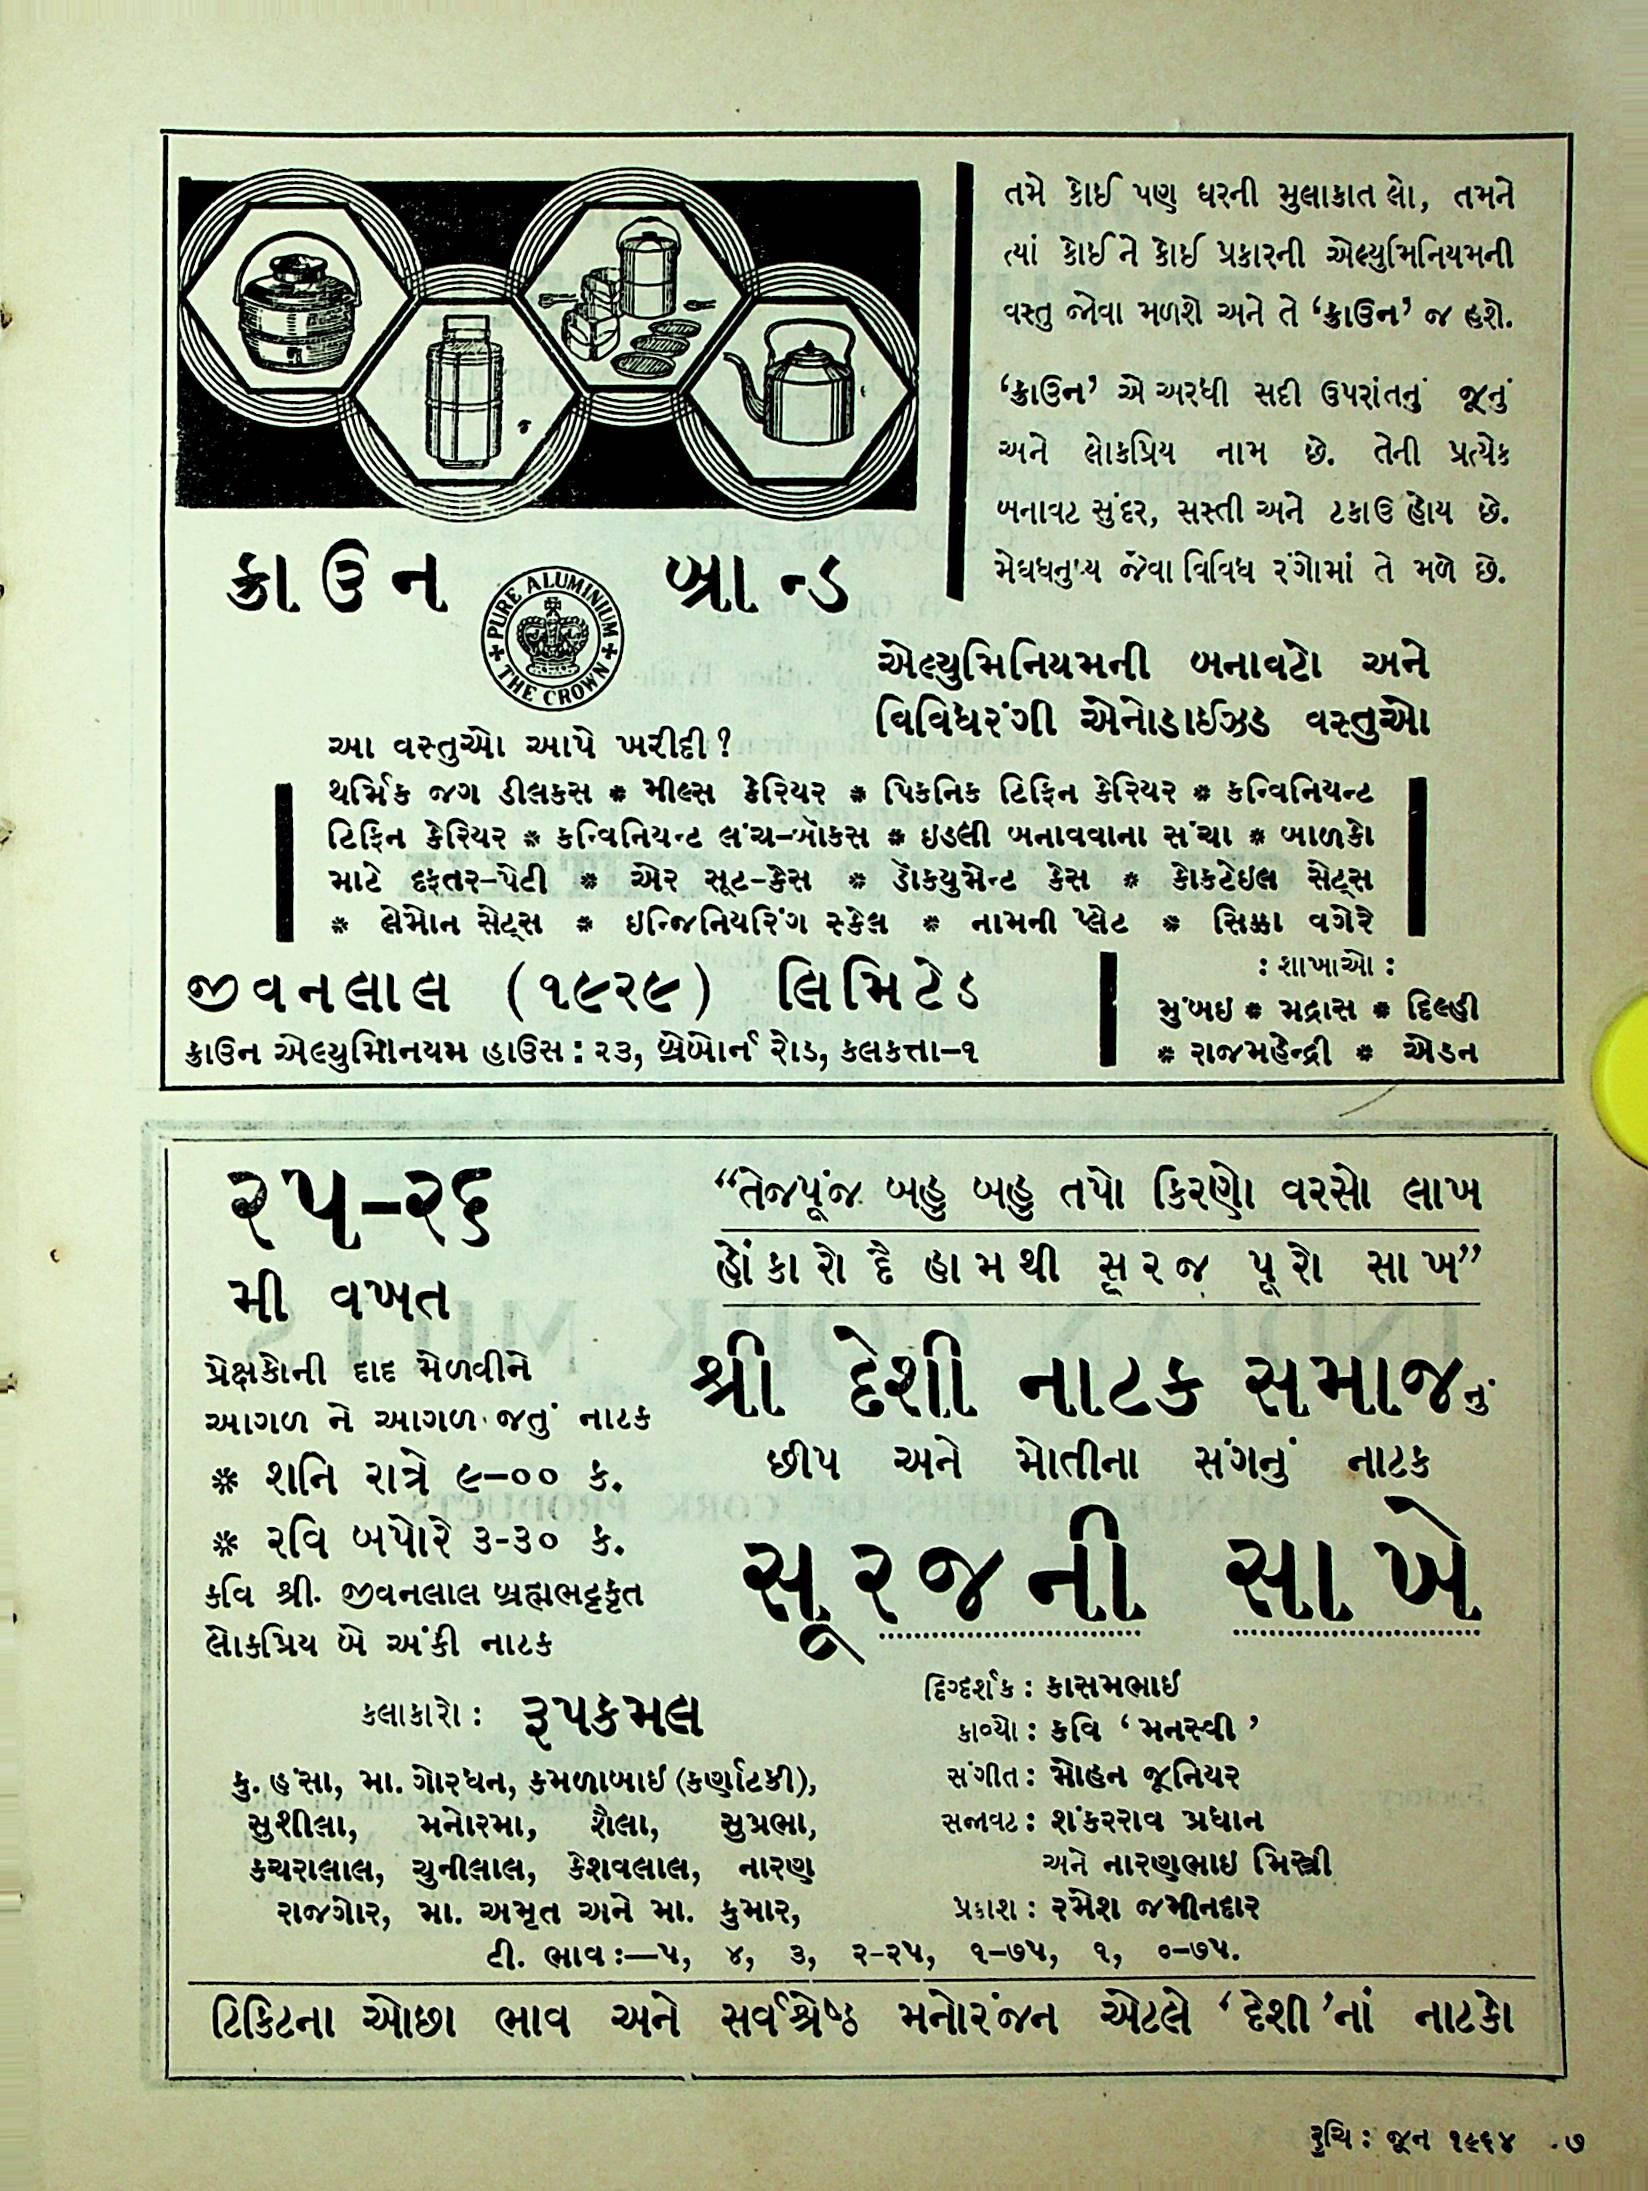 તમે કોઈ પણ ઘરની મુલાકાત લો, તમને
ત્યાં કોઈ ને કોઈ પ્રકારની એલ્યુમિનિયમની
વસ્તુ જોવા મળશે અને તે ‘ક્રાઉન’ જ હશે.
‘ક્રાઉન’ એ અરધી સદી ઉપરાંતનું જૂનું
અને લોકપ્રિય નામ છે. તેની પ્રત્યેક
બનાવટ સુંદર, સસ્તી અને ટકાઉ હોય છે.
મેઘધનુષ્ય જેવા વિવિધ રંગોમાં તે મળે છે.
ક્રાઉન બ્રાન્ડ
PURE ALUMINIUM
THE CROWN
એલ્યુમિનિયમની બનાવટો અને
વિવિધરંગી એનોડાઈઝ્ડ વસ્તુઓ
આ વસ્તુઓ આપે ખરીદી?
થર્મિક જગ ડીલક્સ * મીલ્સ કેરિયર * પિકનિક ટિફિન કેરિયર * કન્વિનિયન્ટ
ટિફિન કેરિયર * કન્વિનિયન્ટ લંચ-બૉક્સ * ઇડલી બનાવવાના સંચા * બાળકો
માટે દફતર-પેટી * એર સૂટ-કેસ * ડૉક્યુમેન્ટ કેસ * કોકટેઇલ સેટ્સ
* લેમોન સેટ્સ * ઇન્જિનિયરિંગ સ્કેલ * નામની પ્લેટ * સિક્કા વગેરે
જીવનલાલ (૧૯૨૯) લિમિટેડ
ક્રાઉન એલ્યુમિનિયમ હાઉસ : ૨૩, બ્રેબોર્ન રોડ, કલકત્તા-૧
: શાખાઓ :
મુંબઇ * મદ્રાસ * દિલ્હી
* રાજમહેન્દ્રી * એડન
૨૫-૨૬
મી વખત
પ્રેક્ષકોની દાદ મેળવીને
આગળ ને આગળ જતું નાટક
* શનિ રાત્રે ૯-૦૦ ક.
* રવિ બપોરે ૩-૩૦ ક.
કવિ શ્રી. જીવનલાલ બ્રહ્મભટ્ટકૃત
લોકપ્રિય બે અંકી નાટક
“તેજપૂંજ બહુ બહુ તપો કિરણો વરસો લાખ
હોંકારો દૈ હામથી સૂરજ પૂરો સાખ”
શ્રી દેશી નાટક સમાજનું
છીપ અને મોતીના સંગનું નાટક
સૂરજની સાખે
કલાકારો : રૂપકમલ
કુ. હંસા, મા. ગોરધન, કમળાબાઇ (કર્ણાટકી),
સુશીલા, મનોરમા, શૈલા, સુપ્રભા,
કચરાલાલ, ચુનીલાલ, કેશવલાલ, નારણ
રાજગોર, મા. અમૃત અને મા. કુમાર,
દિગ્દર્શક : કાસમભાઇ
કાવ્યો : કવિ ‘મનસ્વી’
સંગીત : મોહન જૂનિયર
સજાવટ : શંકરરાવ પ્રધાન
અને નારણભાઇ મિસ્ત્રી
પ્રકાશ : રમેશ જમીનદાર
ટી. ભાવ :—૫, ૪, ૩, ૨-૨૫, ૧-૭૫, ૧, ૦-૭૫.
ટિકિટના ઓછા ભાવ અને સર્વશ્રેષ્ઠ મનોરંજન એટલે ‘દેશી’નાં નાટકો
રુચિ : જૂન ૧૯૬૪ ૭